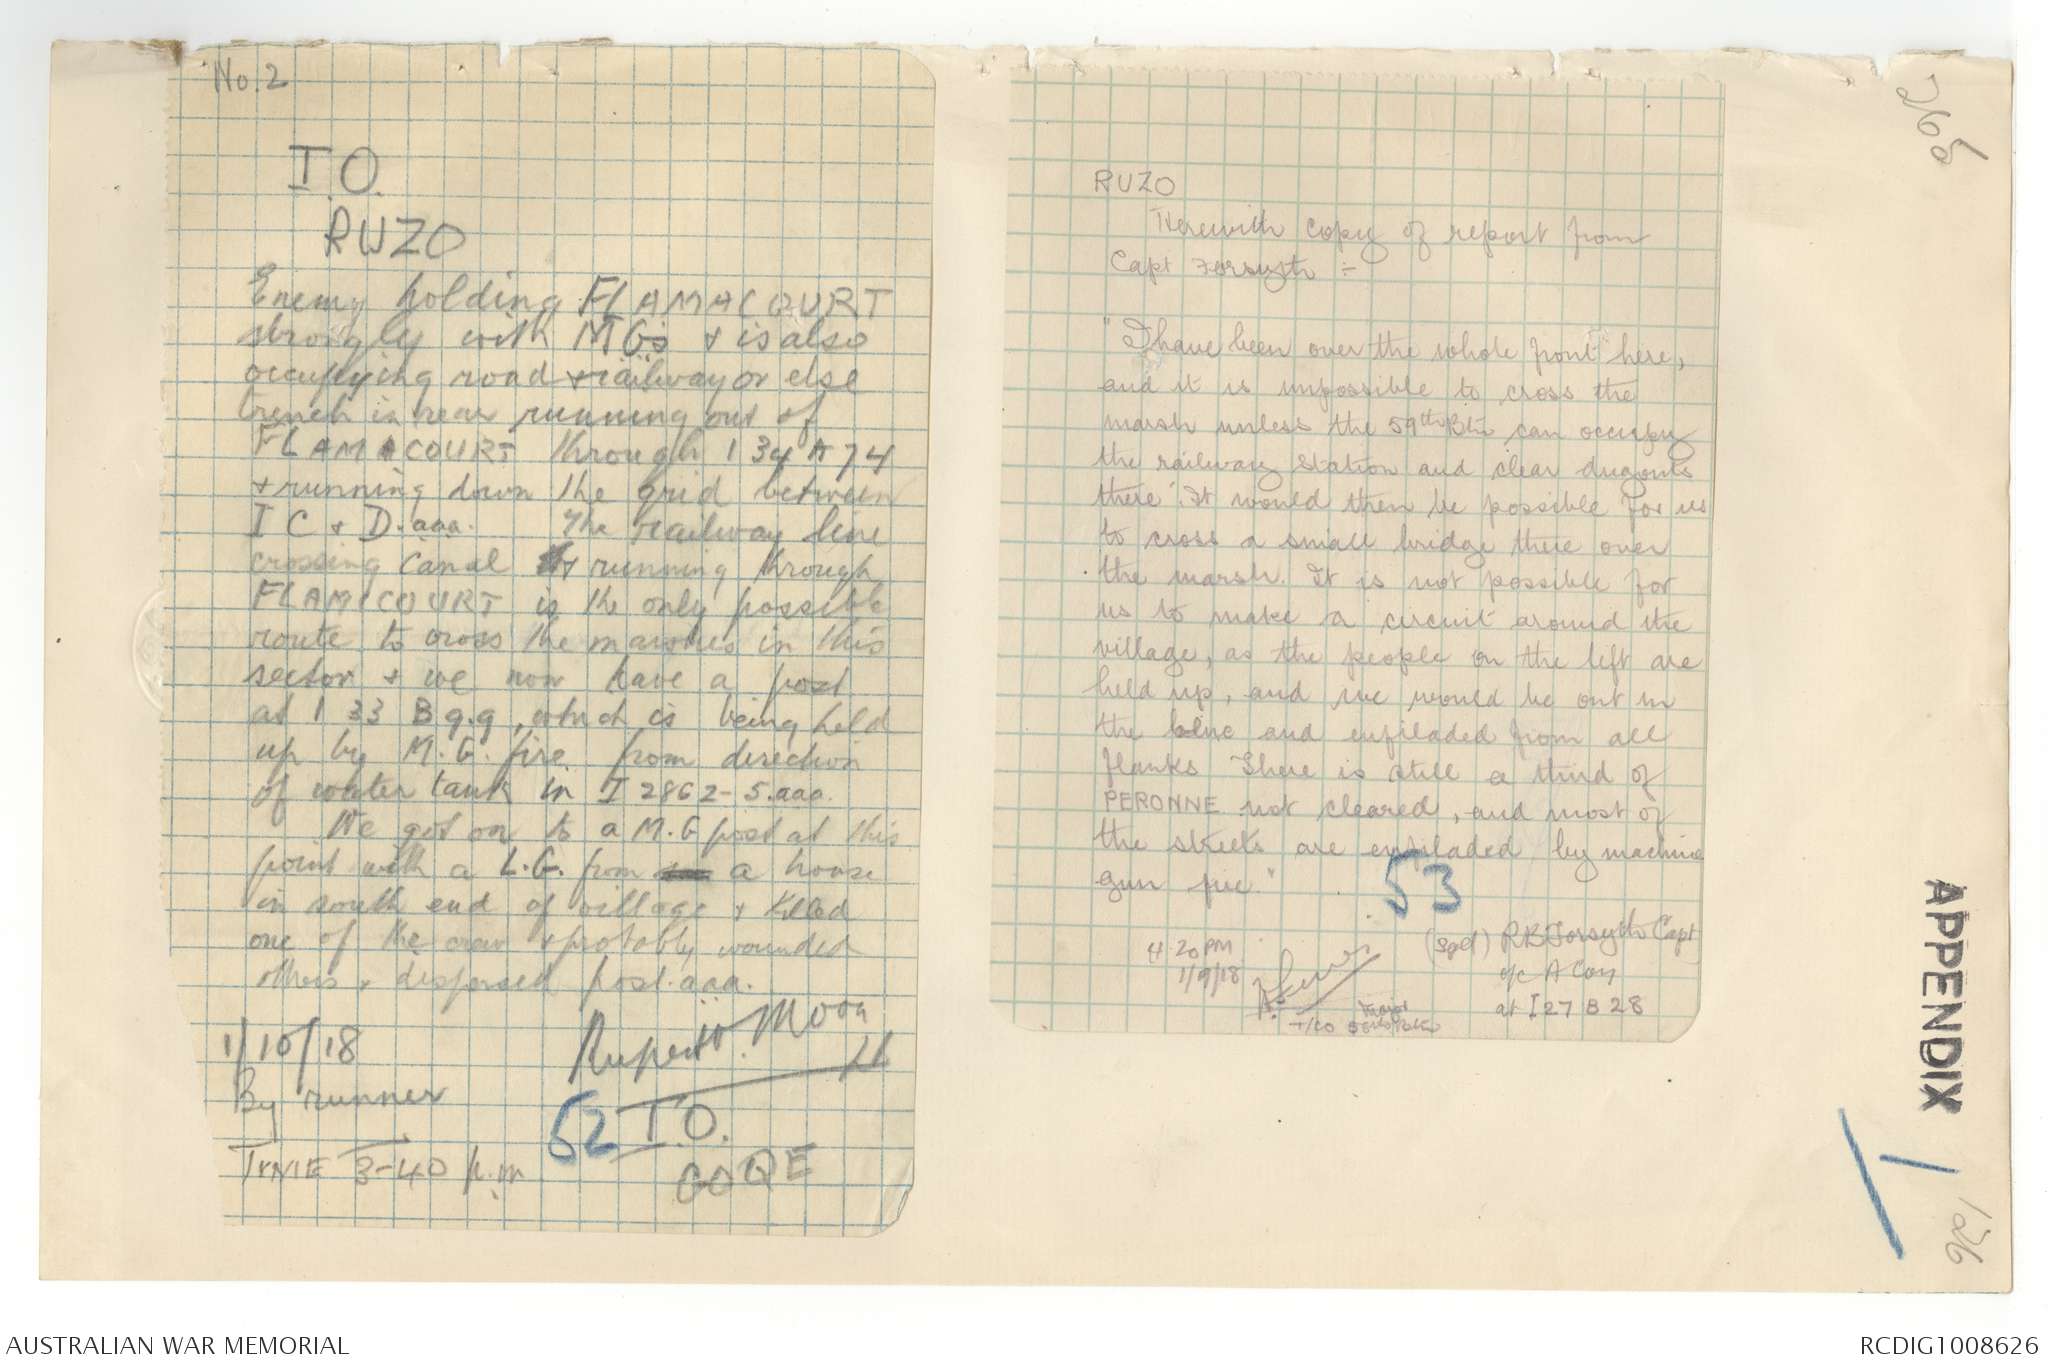 No. 2
I.O.
RUZO
Enemy holding FLAMACOURT
strongly with MGs & is also
occupying road & railway or else
trench in rear running out of
FLAMACOURT through I 34 A 74
& running down the grid between
I C & D. aaa. The railway line
crossing Canal & running through
FLAMICOURT is the only possible
route to cross the marshes in this
sector & we now have a post
at I 33 B 9.9, which is being held
up by M.G. fire from direction
of water tank in I 28 6 2-5. aaa.
We got on to a M.G post at this
point with a L.G. from a house
in south end of village & killed
one of the crew & probably wounded
others & dispersed post. aaa.
1/10/18
Rupert Moon
Lt
By runner
52
I.O.
TIME 3-40 p.m
RUZO
Herewith copy of report from
Capt Forsyth :-
"I have been over the whole front here,
and it is impossible to cross the
marsh unless the 59th Btn can occupy
the railway station and clear dugouts
there. It would then be possible for us
to cross a small bridge there over
the marsh. It is not possible for
us to make a circuit around the
village, as the people on the left are
held up, and we would be out in
the blue and enfiladed from all
flanks There is still a third of
PERONNE not cleared, and most of
the streets are enfiladed by machine
gun fire."
53
(Sgd) RB Forsyth Capt
o/c A Coy
at I 27 B 28
4.20 PM
1/9/18
Major
T/CO
APPENDIX
1
126
AUSTRALIAN WAR MEMORIAL
RCDIG1008626